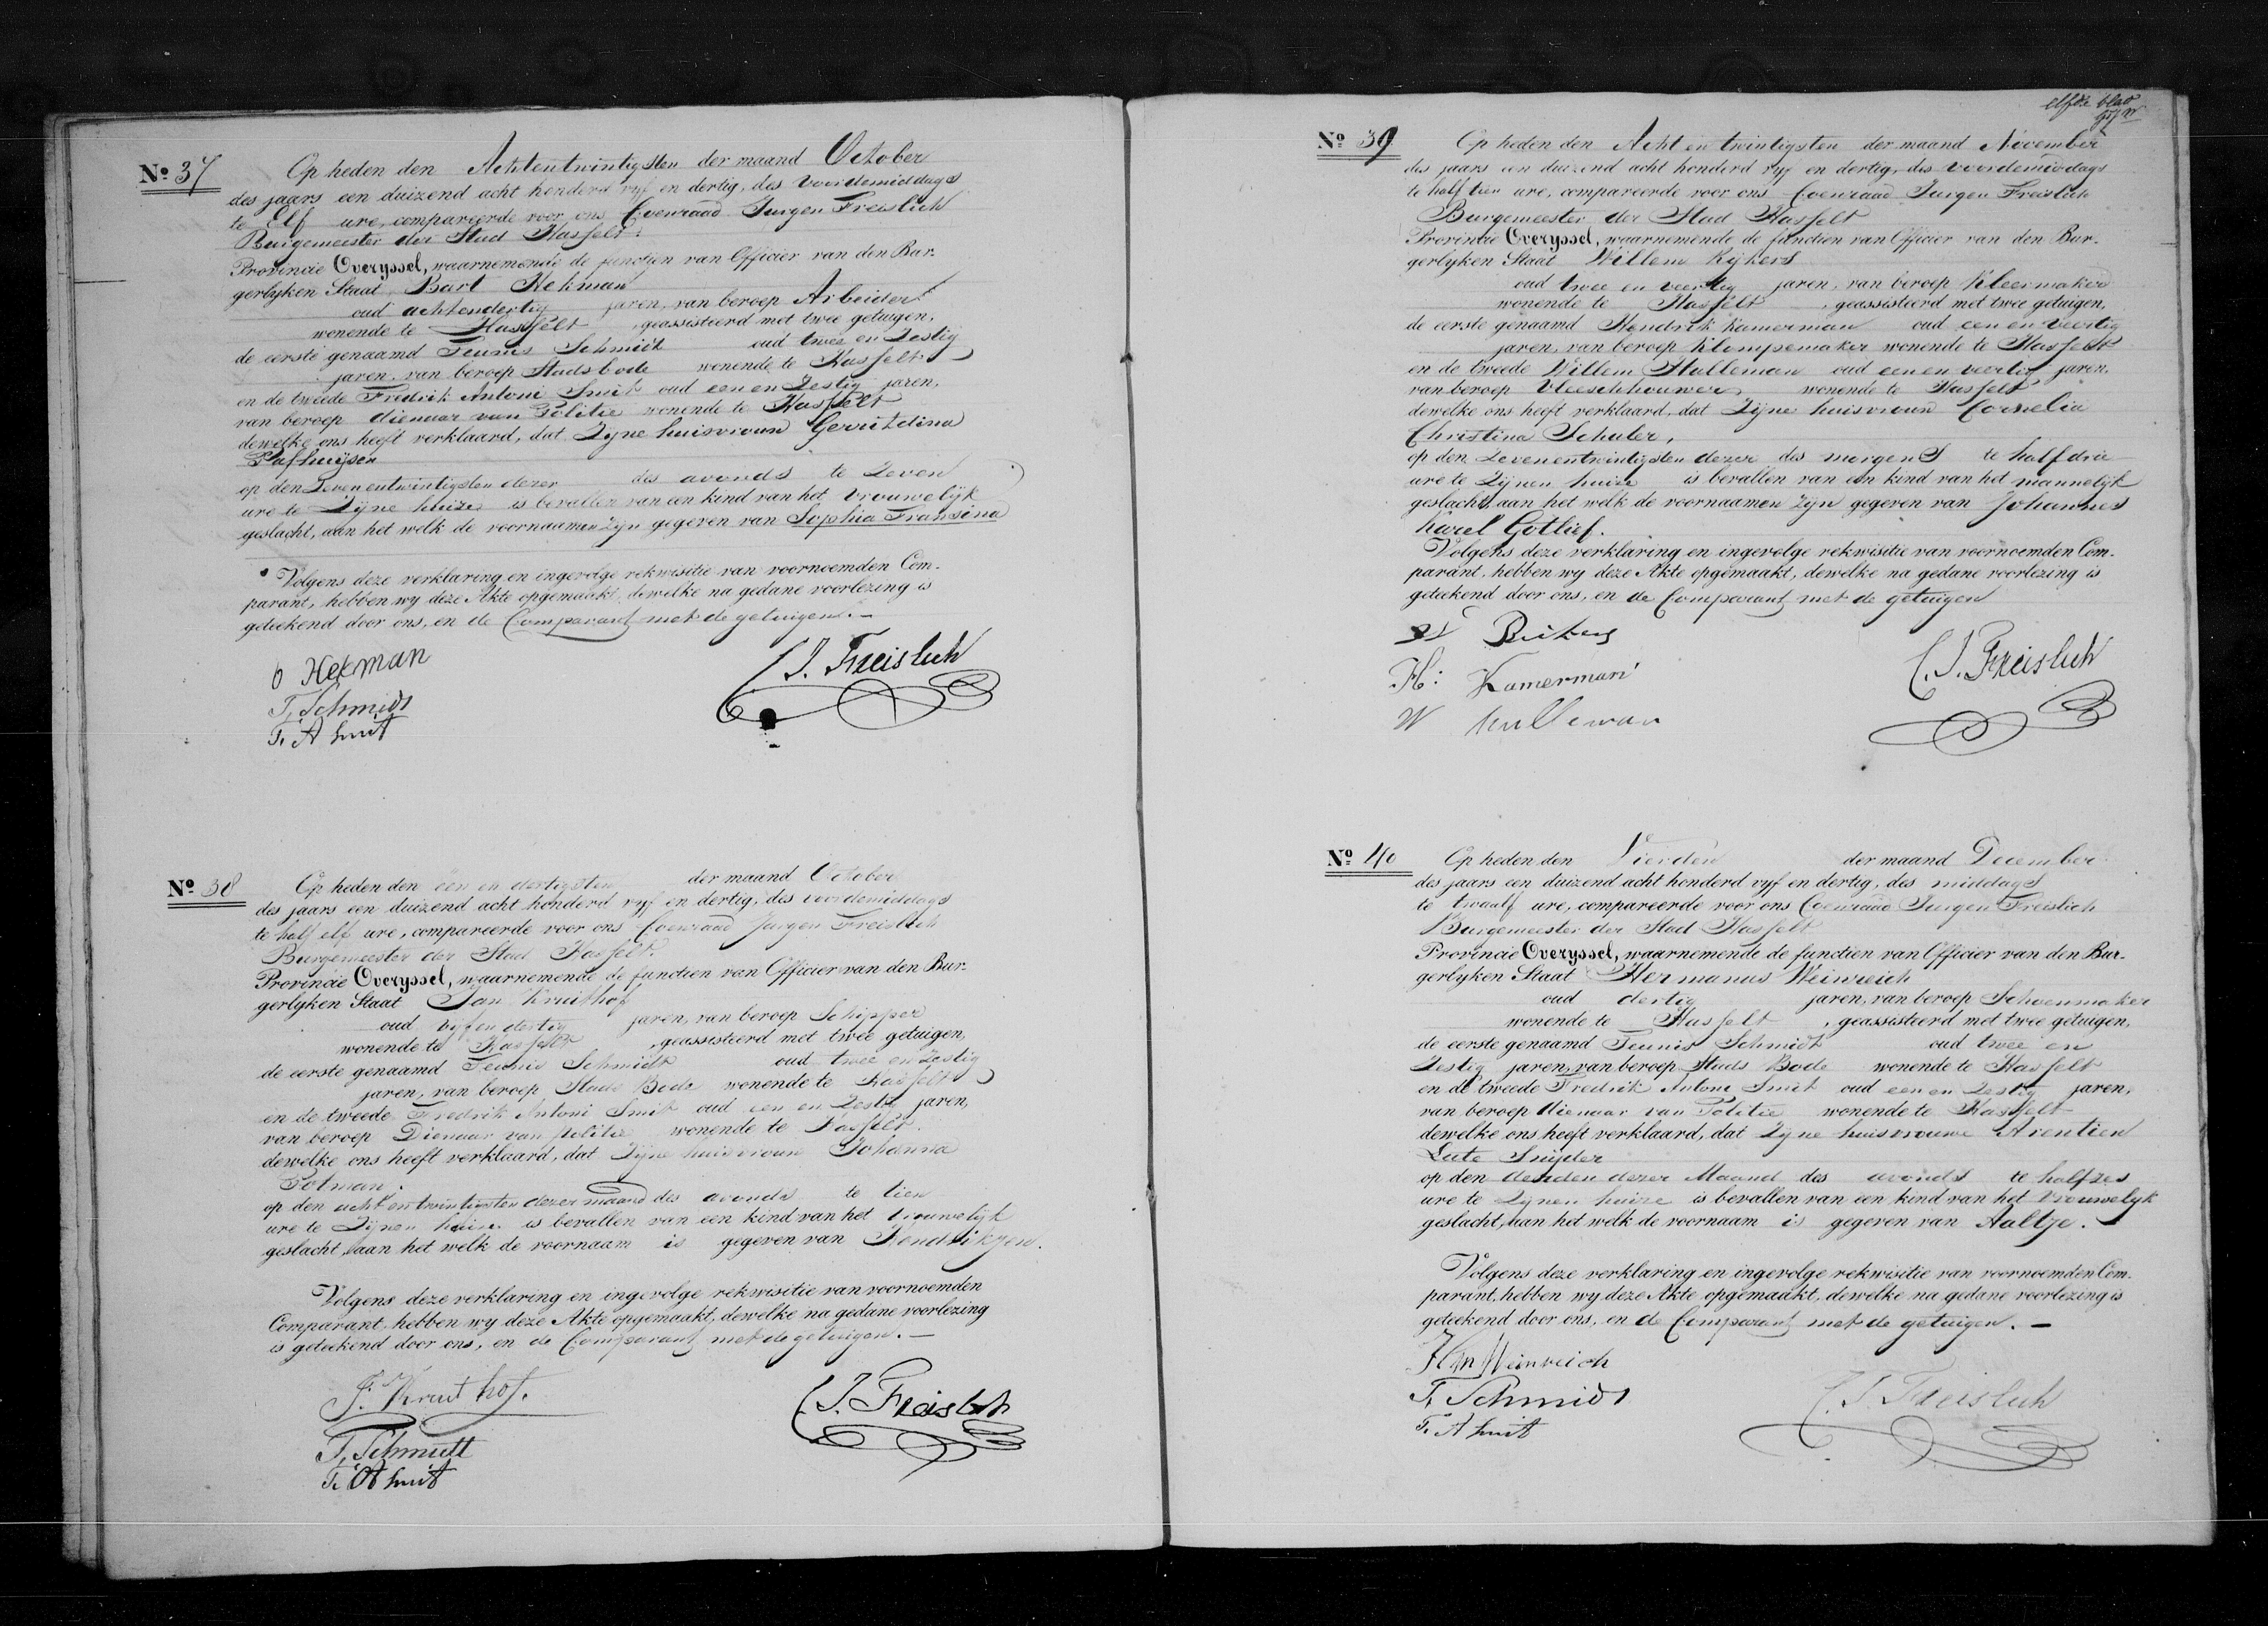 No 37
Op heden den Achtentwintigsten der maand October
des jaars een duizend acht honderd vyf en dertig, des voordemiddags
te Elf ure, compareerde voor ons Coenraad Jurgen Freislich
Burgemeester der Stad Hasselt.
Provincie Overyssel, waarnemende de functien van Officier van den Bur-
gerlyken Staat, Bart Hekman
oud achtendertig jaren, van beroep Arbeider
wonende te Hasselt, geassisteerd met twee getuigen,
de eerste genaamd Teunis Schmidt oud twee en Zestig
jaren, van beroep Stadsbode wonende te Hasselt
en de tweede Fredrik Antoni Smit oud een en Zestig jaren,
van beroep dienaar van Politie wonende te Hasselt
dewelke ons heeft verklaard, dat Zyne huisvrouw Gerritdina
Pafhuijsen
op den Zevenentwintigsten dezer des avonds te Zeven
ure te Zijne huize is bevallen van een kind van het vrouwelijk
geslacht, aan het welk de voornaamen zyn gegeven van Sophia Fransina
Volgens deze verklaring en ingevolge rekwisitie van voornoemden Com-
parant, hebben wy deze Akte opgemaakt, dewelke na gedane voorlezing is
geteekend door ons, en de Comparant met de getuigen.
Hekman
C. J. Freislich
T. Schmidt
F. A Smit
No 38
Op heden den een en dertigsten der maand October
des jaars een duizend acht honderd vyf en dertig, des voordemiddags
te half elf ure, compareerde voor ons Coenraad Jurgen Freislich
Burgemeester der Stad Hasselt.
Provincie Overyssel, waarnemende de functien van Officier van den Bur-
gerlyken Staat Jan Kruithof
oud vyfendertig jaren, van beroep Schipper
wonende te Hasselt, geassisteerd met twee getuigen,
de eerste genaamd Teunis Schmidt oud twee en Zestig
jaren, van beroep Stads Bode wonende te Hasselt
en de tweede Fredrik Antoni Smit oud een en Zestig jaren,
van beroep Dienaar van politie wonende te Hasselt.
dewelke ons heeft verklaard, dat Zijne huisvrouw Johanna
Potman.
op den acht en twintigsten dezer maand des avonds te tien
ure te Zijnen huize is bevallen van een kind van het vrouwelijk
geslacht, aan het welk de voornaam is gegeven van Hendrikjen.
Volgens deze verklaring en ingevolge rekwisitie van voornoemden
Comparant, hebben wy deze Akte opgemaakt, dewelke na gedane voorlezing
is geteekend door ons, en de Comparant met de getuigen.
J. Kruithof.
C. J. Freislich
T. Schmidt
F. A Smit
elfde blad
No 39
Op heden den Acht en twintigsten der maand November
des jaars een duizend acht honderd vyf en dertig, des voordemiddags
te half tien ure, compareerde voor ons Coenraad Jurgen Freislich
Burgemeester der Stad Hasselt
Provincie Overyssel, waarnemende de functien van Officier van den Bur-
gerlyken Staat Willem Rijkers
oud twee en veertig jaren, van beroep Kleermaker
wonende te Hasselt, geassisteerd met twee getuigen,
de eerste genaamd Hendrik Kamerman oud een en veertig
jaren, van beroep Klompemaker wonende te Hasselt
en de tweede Willem Hulleman oud een en veertig jaren.
van beroep Vleeschhouwer wonende te Hasselt
dewelke ons heeft verklaard, dat Zijne huisvrouw Cornelia
Christina Schuler,
op den Zevenentwintigsten dezer des morgens te half drie
ure te Zijnen huize is bevallen van een kind van het mannelijk
geslacht, aan het welk de voornaamen zyn gegeven van Johannes
Karel Gotlief.
Volgens deze verklaring en ingevolge rekwisitie van voornoemden Com-
parant, hebben wy deze Akte opgemaakt, dewelke na gedane voorlezing is
geteekend door ons, en de Comparant met de getuigen
W Reikers
C. J. Freislich
H: Kamerman
W Hulleman
No 40
Op heden den Vierden der maand December
des jaars een duizend acht honderd vyf en dertig, des middags
te twaalf ure, compareerde voor ons Coenraad Jurgen Freislich
Burgemeester der Stad Hasselt
Provincie Overyssel, waarnemende de functien van Officier van den Bur-
gerlyken Staat Hermanus Weinreich
oud dertig jaren, van beroep Schoenmaker
wonende te Hasselt, geassisteerd met twee getuigen,
de eerste genaamd Teunis Schmidt oud twee en
Zestig jaren, van beroep Stads Bode wonende te Hasselt
en de tweede Fredrik Antoni Smit oud een en Zestig jaren,
van beroep dienaar van Politie wonende te Hasselt
dewelke ons heeft verklaard, dat Zyne huisvrouwe Arentien
Lute Snijder
op den derden dezer Maand des avonds te halfzes
ure te Zijnen huize is bevallen van een kind van het vrouwelyk
geslacht, aan het welk de voornaam is gegeven van Aaltje.
Volgens deze verklaring en ingevolge rekwisitie van voornoemden Com-
parant, hebben wy deze Akte opgemaakt, dewelke na gedane voorlezing is
geteekend door ons, en de Comparant met de getuigen.
Hm Weinreich
C. J. Freislich
T. Schmidt
F. A Smit